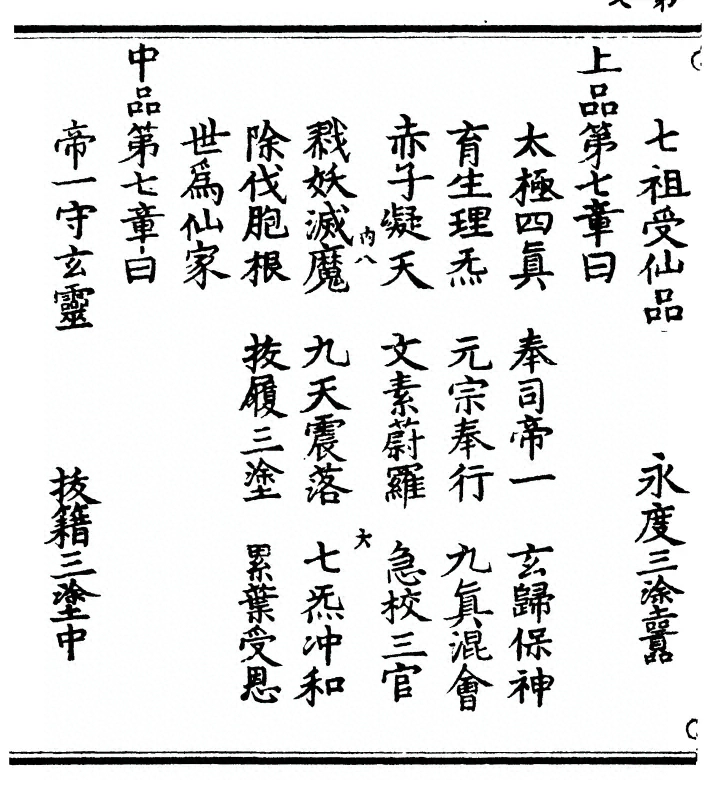 七祖受仙品　永度三塗嚚
上品第七章曰
太極四真　奉司帝一　玄歸保神
育生理炁　元宗奉行　九真混會
赤子凝天　文素蔚羅　急校三官
內八　大
戮妖滅魔　九天震落　七炁冲和
除伐胞根　拔履三塗　累葉受恩
世為仙家
中品第七章曰
帝一守玄靈　拔籍三塗中